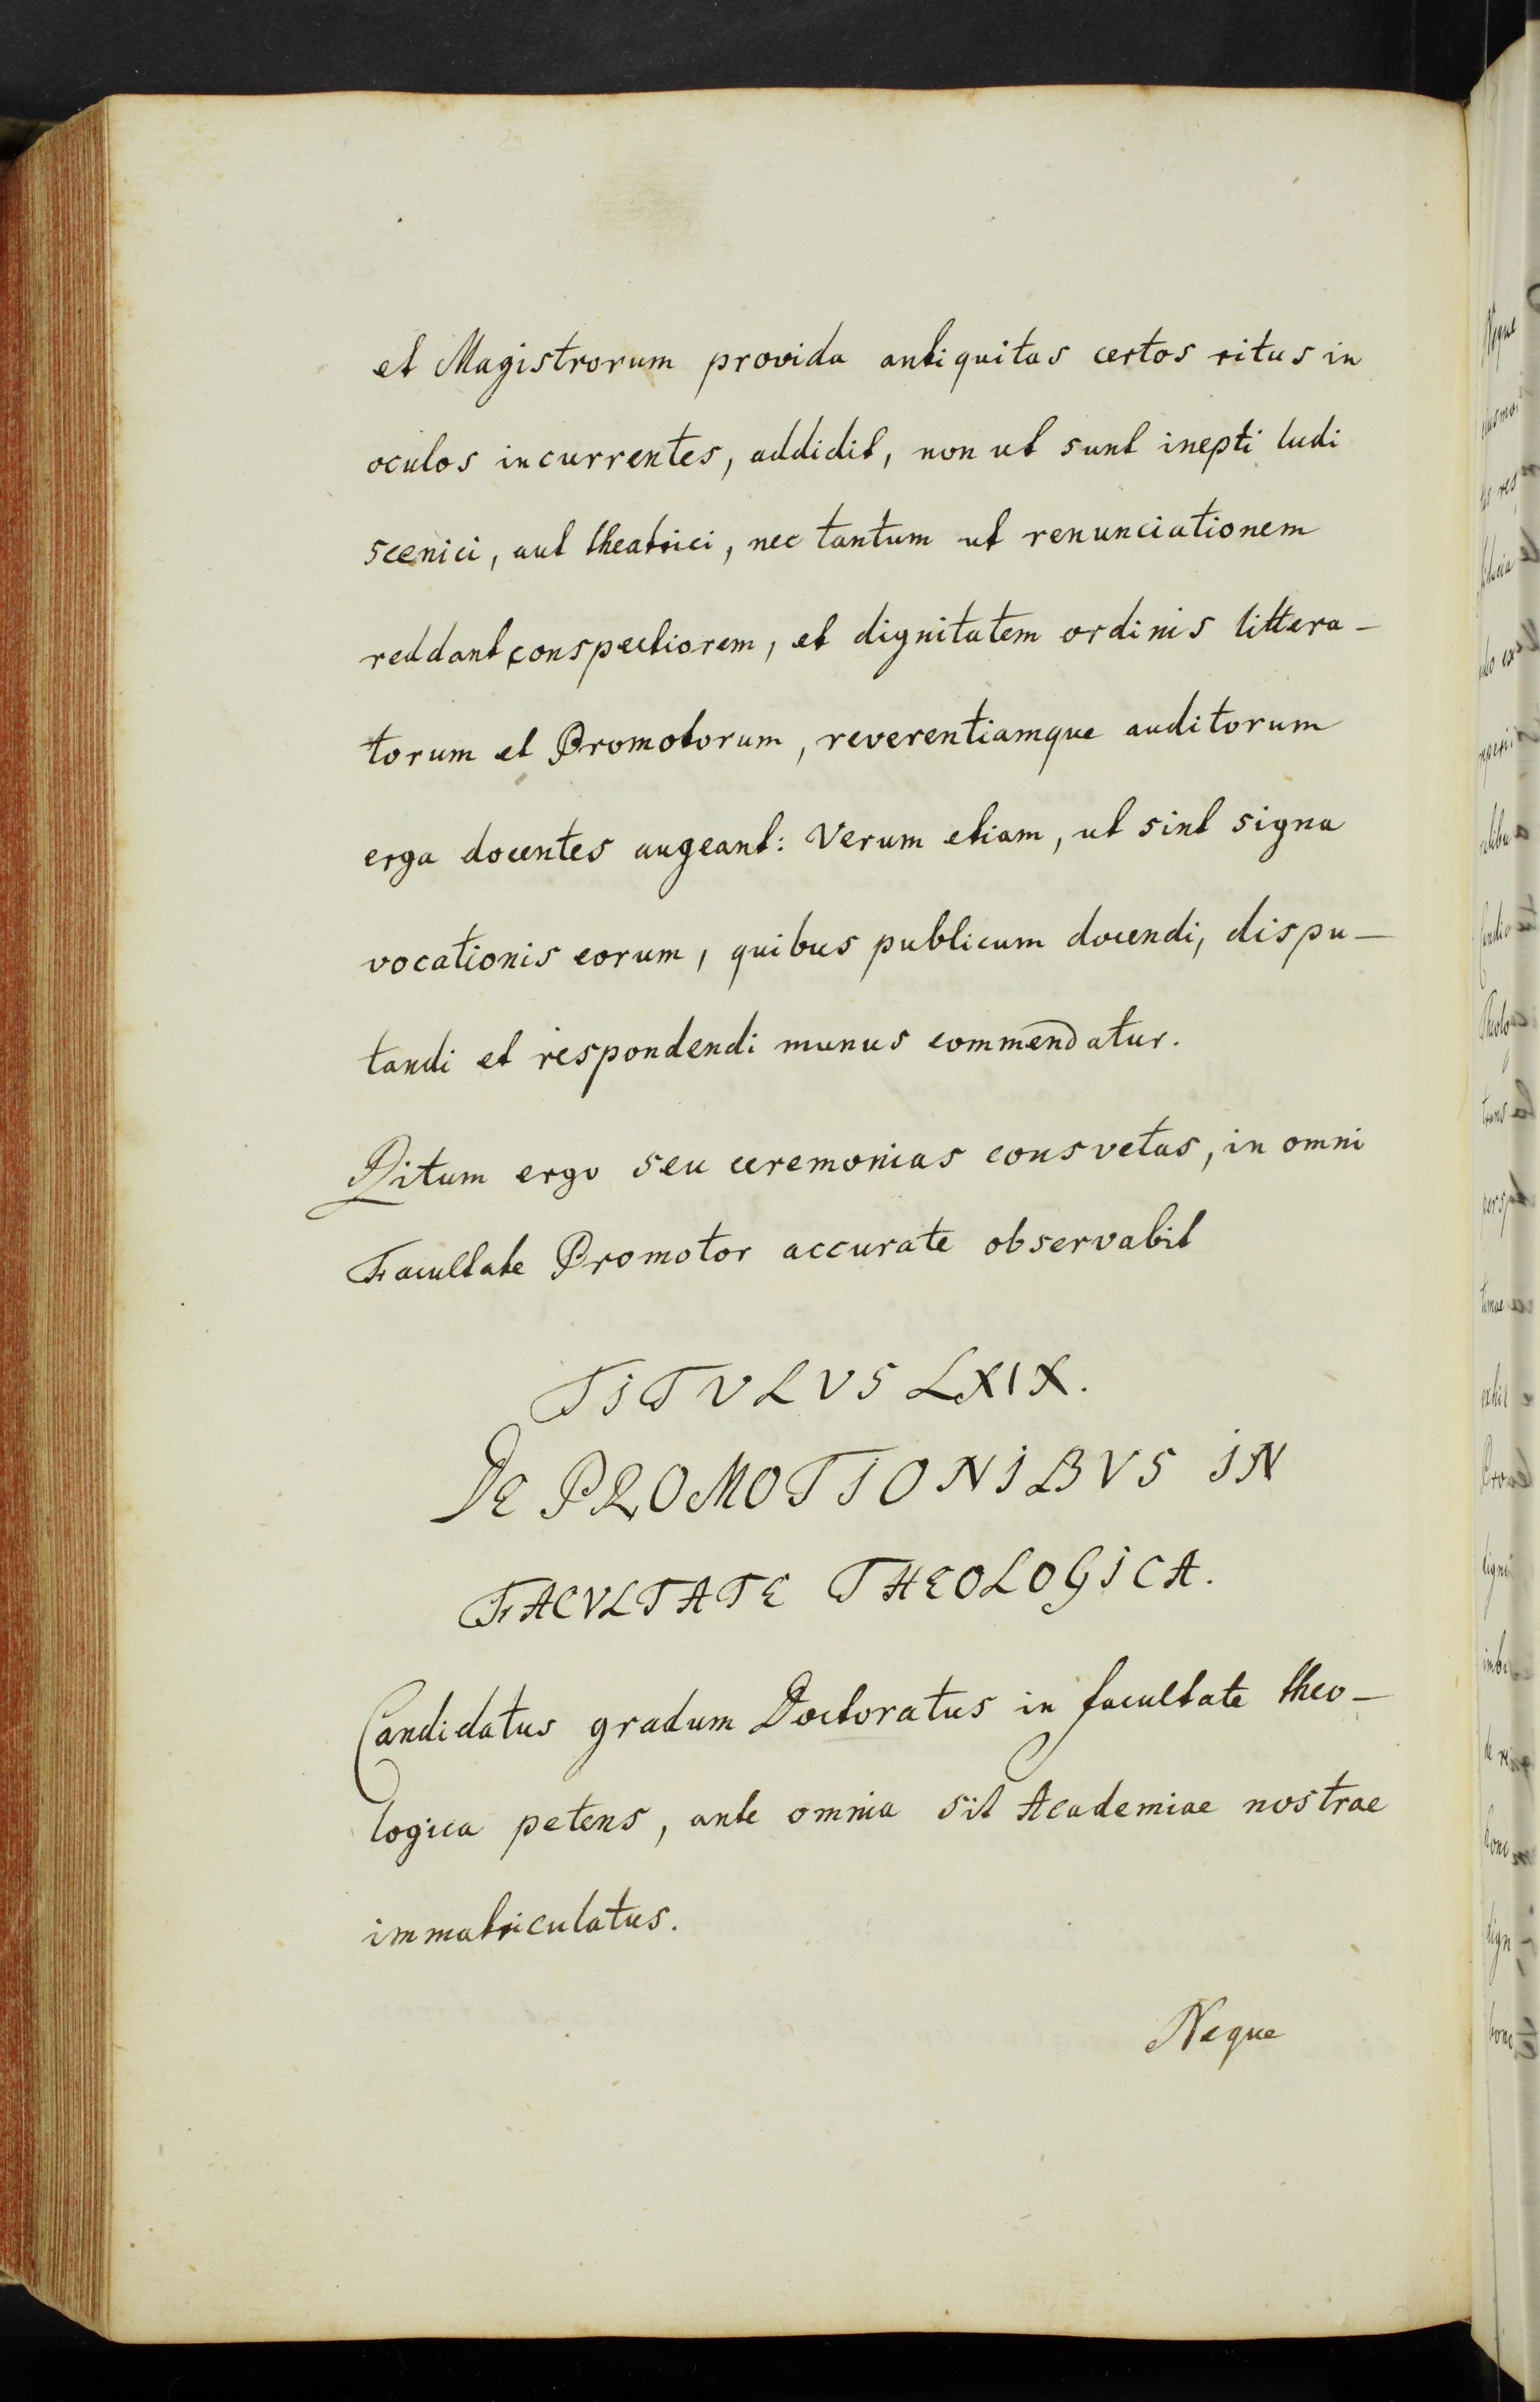 et Magistrorum provida antiquitas certos ritus in
oculos incurrentes, addidit, non ut sunt inepti ludi
scenici, aut theatrici, nec tantum ut renunciationem
reddant conspectiorem, et dignitatem ordinis littera-
torum et Promotorum, reverentiamque auditorum
erga docentes augeant: Verum etiam, ut sint signa
vocationis eorum, quibus publicum docendi, dispu-
tandi et respondendi munus commendatur.
Ritum ergo seu ceremonias consvetas, in omni
Facultate Promotor accurate observabit
TITVLVS LXIX.
DE PROMOTIONIBVS IN
FACVLTATE THEOLOGICA.
Candidatus gradum Doctoratus in facultate theo-
logica petens, ante omnia sit Academiae nostrae
immatriculatus.
Neque